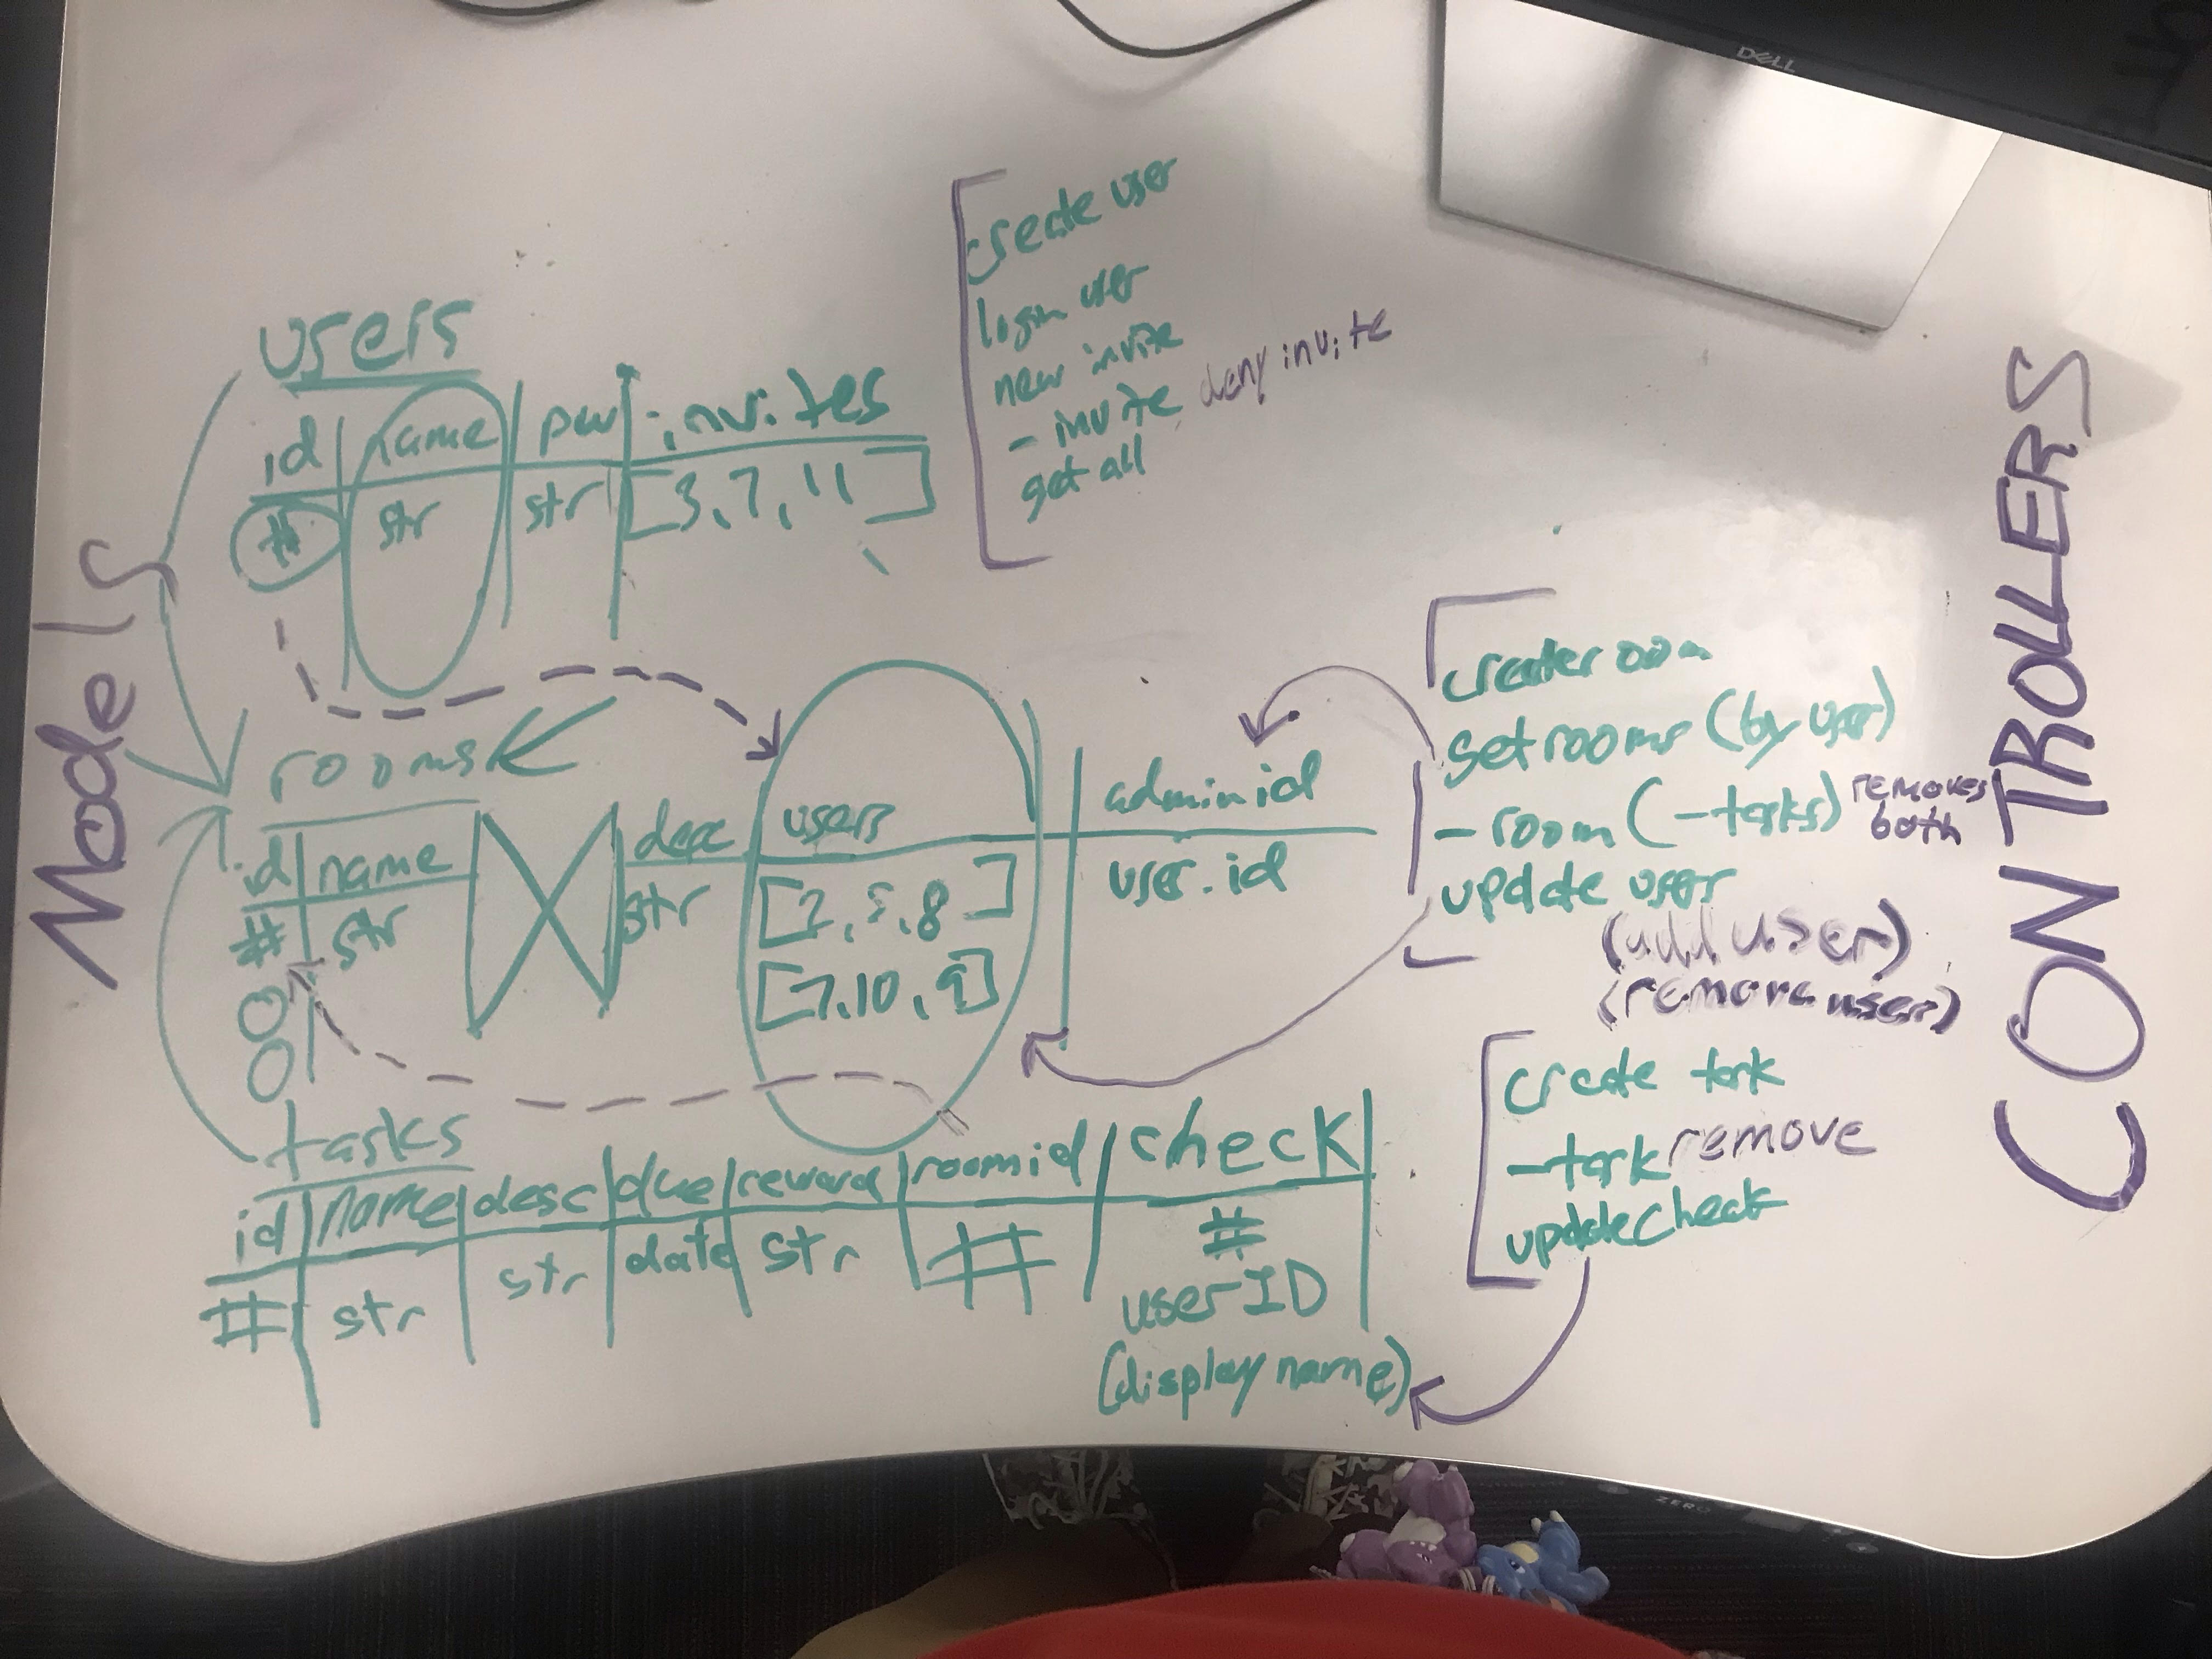 DELL
Models
users
id name pw invites
# str str [3, 7, 11]
create user
login user
new invite
- invite deny invite
get all
rooms
id name desc users adminid
# str str [2, 5, 8] user.id
[7, 10, 9]
create room
get rooms (by user)
- room (-tasks) removes both
update user
(add user)
(remove user)
tasks
id name desc due reward roomid check
# str str date str # #
userID
(display name)
create task
- task remove
update check
CONTROLLERS
ZERO